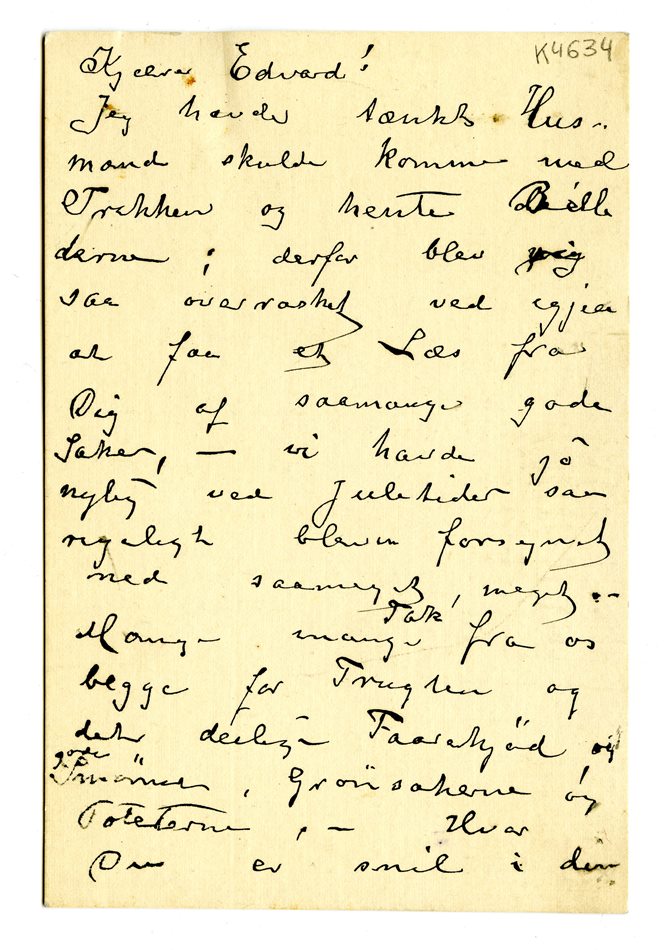 K4634
Kjære Edvard!
Jeg havde tænkt Hus-
mand skulde komme med
Trækken og hente Bille
derne; derfor blev jeg
saa overrasket ved igjen
at faa et Læs fra
Dig af saamange gode
Saker, — vi havde jo
nylig ved Juletider saa
rigeligt bleven forsynet
med saameget, meget.-
Mange mange Tak fra os
begge for Frugten og
det deilige Faarekjød, og
gode Smørret, Grönsakerne og
Poteterne, — Hvor
Du er snil i din